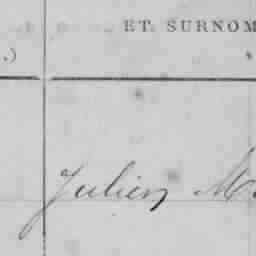 ET SURNOM
.)
Julien M